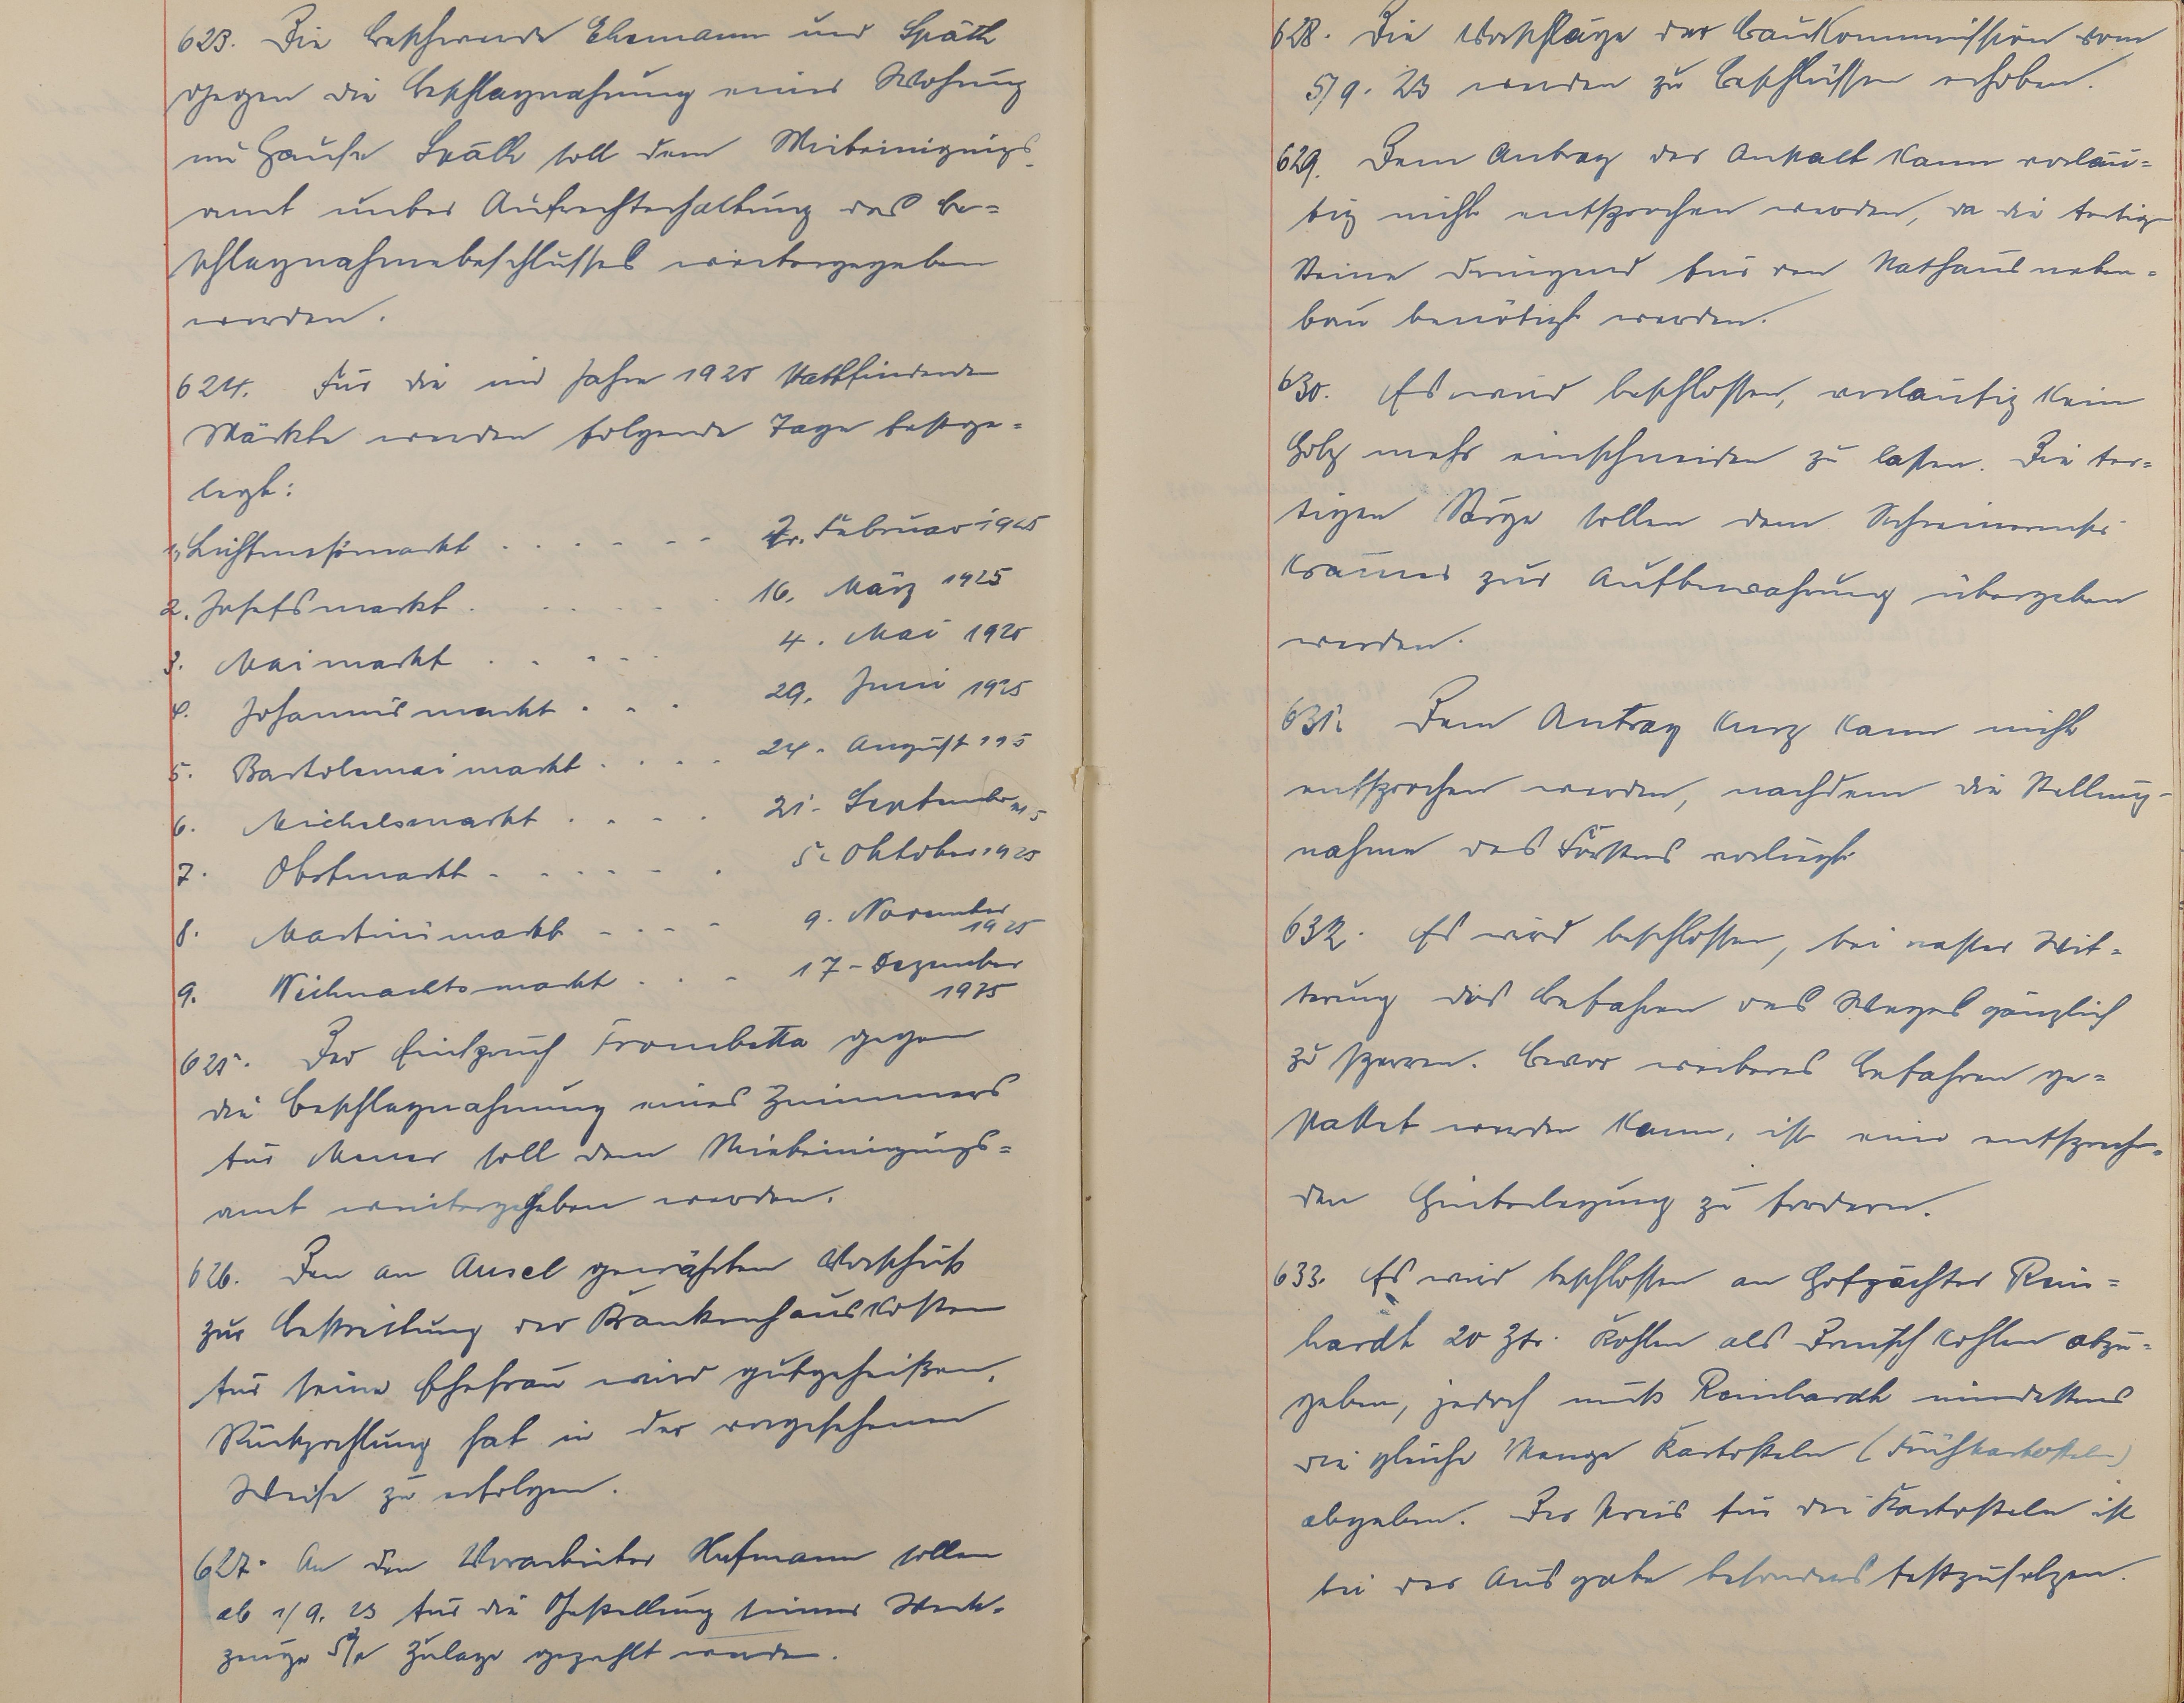 623. Die Beschwerde Ehemann und Späth
gegen die Beschlagnahmung einer Wohnung
im Hause Späth soll dem Mieteinigungs-
amt unter Aufrechterhaltung des Be-
schlagnahmebeschlusses weitergegeben
werden.
624. Für die im Jahre 1925 stattfindenden
Märkte werden folgende Tage festge-
legt:
1. Lichtmeßmarkt . . . . . . 2. Februar 1925
2. Josefsmarkt . . . . . . 16. März 1925
3. Maimarkt . . . . . 4. Mai 1925
4. Johannismarkt . . . 29. Juni 1925
5. Bartolemaimarkt . . . . 24. August 195
6. Michelsmarkt . . . . 21. September
7. Obstmarkt . . . . . . 5. Oktober 1925
8. Martinimarkt . . . . 9. November
1925
9. Weihnachtsmarkt . . . 17. Dezember
1925
625. Der Einspruch Trombetta gegen
die Beschlagnahmung eines Zimmers
für soll dem Mieteinigungs-
amt weitergegeben werden.
626. Den an Ansel gewährten Vorschuß
zur Bestreitung der Krankenhauskosten
für seine Ehefrau wird gutgeheißen.
Rückzahlung hat in der vorgesehenen
Weise zu erfolgen.
627. An den Vorarbeiter Hufmann sollen
ab 1/9. 23 für die Gestellung seiner Werk-
zeuge 5% Zulage gezahlt werden.
628. Die Vorschläge der Baukommission vom
5/9. 23 werden zu Beschlüssen erhoben.
629. Dem Antrag der Anstalt kann vorläu-
fig nicht entsprochen werden, da die fertigen
Steine dringend für den Rathausneben-
bau benötigt werden.
630. Es wird beschlossen, vorläufig kein
Holz mehr einschneiden zu lassen. Die fer-
tigen Särge sollen dem Schreinermstr.
Krämer zur Aufbewahrung übergeben
werden.
631. Dem Antrag Kurz kann nicht
entsprochen werden, nachdem die Stellung-
nahme des Försters vorliegt.
632. Es wird beschlossen, bei nasser Wit-
terung das Befahren des Weges gänzlich
zu sperren. Bevor weiteres Befahren ge-
stattet werden kann, ist eine entsprechen-
den Hinterlegung zu fordern.
633. Es wird beschlossen an Hofpächter Rein-
hardt 20 Ztr. Kohlen als Druschkohlen abzu-
geben, jedoch muß Reinhardt mindestens
die gleiche Menge Kartoffeln (Frühkartoffeln)
abgeben. Der Preis für die Kartoffeln ist
bei der Ausgabe besonders festzusetzen.